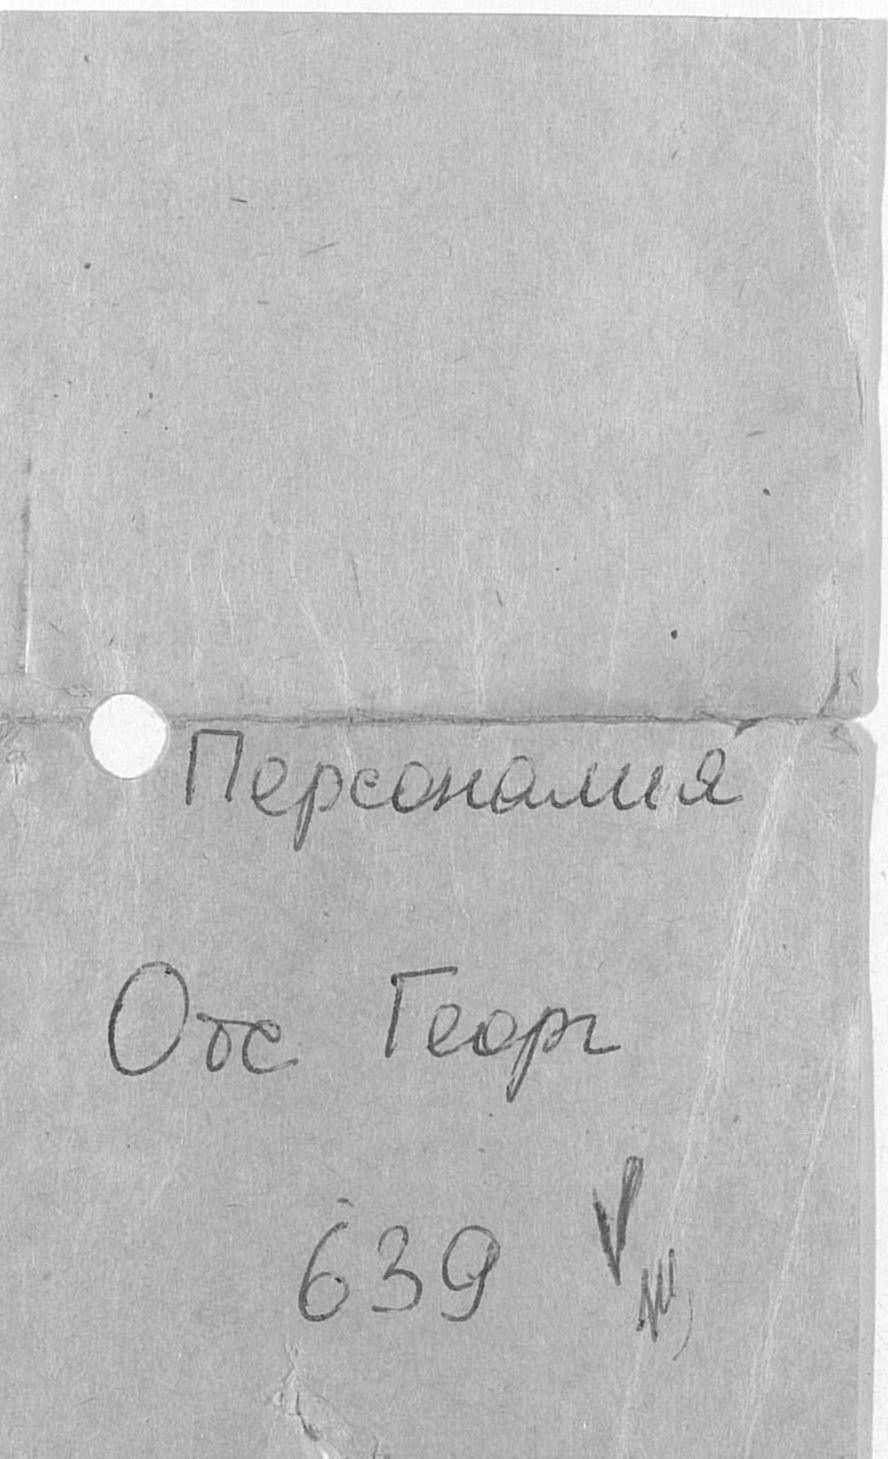 Персоналия
Отс Георг
639